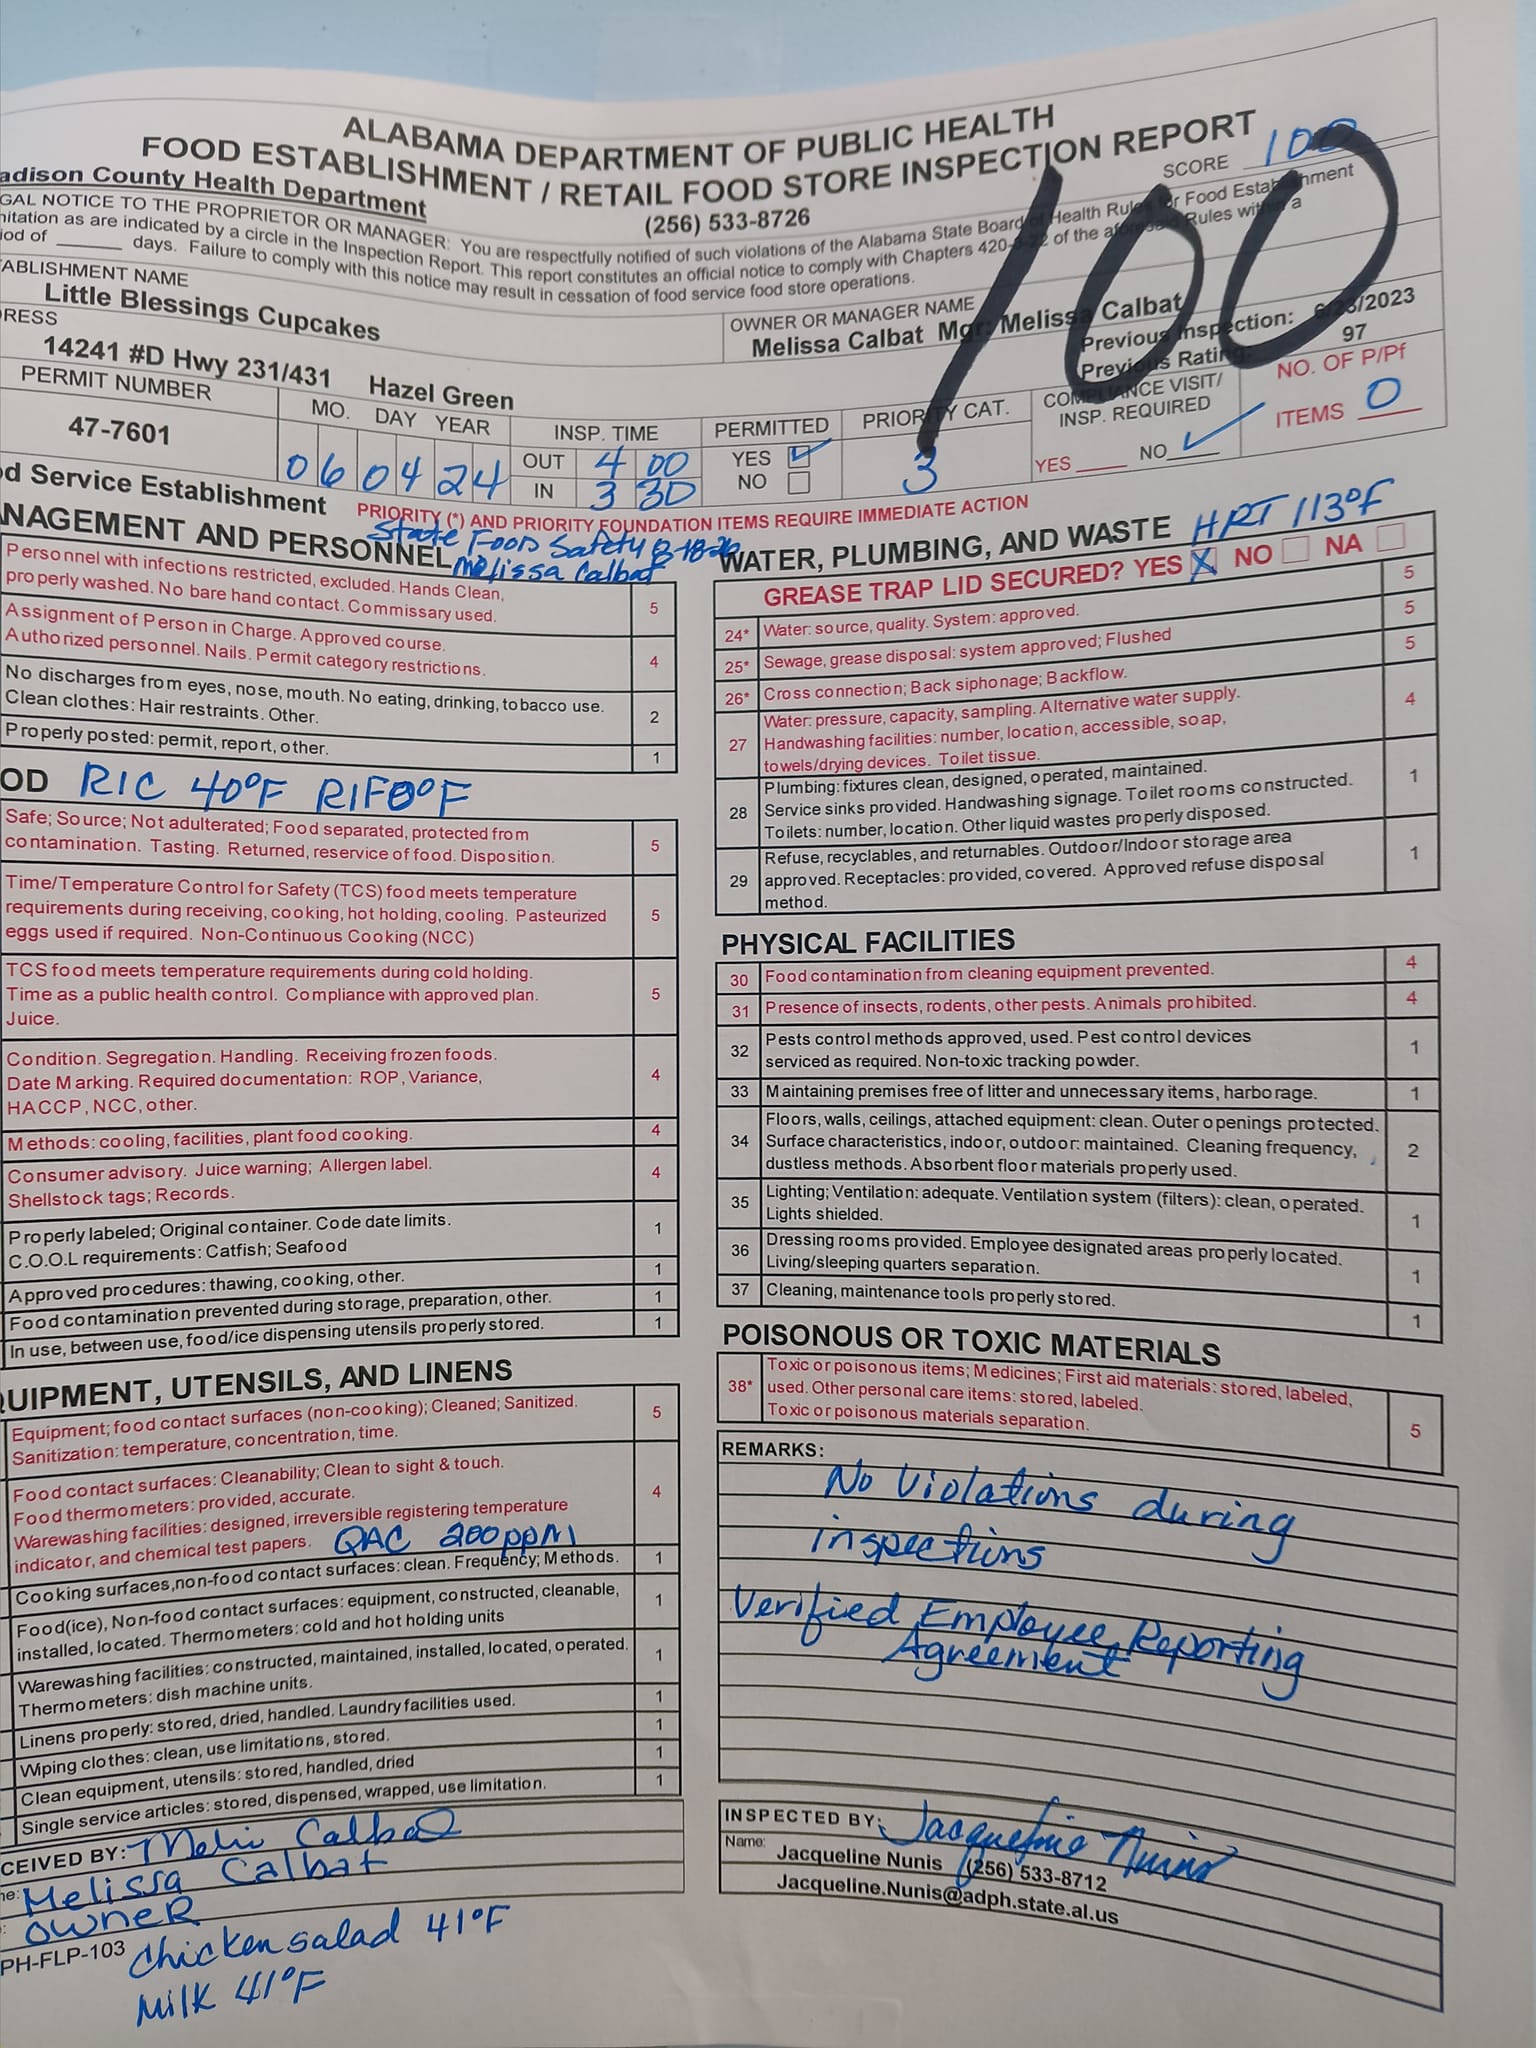 ALABAMA DEPARTMENT OF PUBLIC HEALTH
FOOD ESTABLISHMENT / RETAIL FOOD STORE INSPECTION REPORT
adison County Health Department
(256) 533-8726
SCORE 100
100
GAL NOTICE TO THE PROPRIETOR OR MANAGER: You are respectfully notified of such violations of the Alabama State Board of Health Rules for Food Establishment
nitation as are indicated by a circle in the Inspection Report. This report constitutes an official notice to comply with Chapters 420-3-22 of the aforesaid Rules within a
iod of ______ days. Failure to comply with this notice may result in cessation of food service food store operations.
TABLISHMENT NAME
Little Blessings Cupcakes
OWNER OR MANAGER NAME
Melissa Calbat Mgr: Melissa Calbat
DRESS
14241 #D Hwy 231/431 Hazel Green
Previous Inspection: 6/23/2023
Previous Rating: 97
PERMIT NUMBER
47-7601
MO. DAY YEAR
06 04 24
INSP. TIME
OUT 4 00
IN 3 30
PERMITTED
YES ☑
NO ☐
PRIORITY CAT.
3
COMPLIANCE VISIT/
INSP. REQUIRED
YES ____ NO ✓
NO. OF P/Pf
ITEMS 0
d Service Establishment
PRIORITY (*) AND PRIORITY FOUNDATION ITEMS REQUIRE IMMEDIATE ACTION
NAGEMENT AND PERSONNEL State Food Safety 8-18-26
Melissa Calbat
Personnel with infections restricted, excluded. Hands Clean, 5
properly washed. No bare hand contact. Commissary used.
Assignment of Person in Charge. Approved course. 4
Authorized personnel. Nails. Permit category restrictions.
No discharges from eyes, nose, mouth. No eating, drinking, tobacco use. 2
Clean clothes: Hair restraints. Other.
Properly posted: permit, report, other. 1
OD RIC 40°F RIF 0°F
Safe; Source; Not adulterated; Food separated, protected from 5
contamination. Tasting. Returned, reservice of food. Disposition.
Time/Temperature Control for Safety (TCS) food meets temperature
requirements during receiving, cooking, hot holding, cooling. Pasteurized 5
eggs used if required. Non-Continuous Cooking (NCC)
TCS food meets temperature requirements during cold holding.
Time as a public health control. Compliance with approved plan. 5
Juice.
Condition. Segregation. Handling. Receiving frozen foods.
Date Marking. Required documentation: ROP, Variance, 4
HACCP, NCC, other.
Methods: cooling, facilities, plant food cooking. 4
Consumer advisory. Juice warning; Allergen label. 4
Shellstock tags; Records.
Properly labeled; Original container. Code date limits. 1
C.O.O.L requirements: Catfish; Seafood
Approved procedures: thawing, cooking, other. 1
Food contamination prevented during storage, preparation, other. 1
In use, between use, food/ice dispensing utensils properly stored. 1
QUIPMENT, UTENSILS, AND LINENS
Equipment; food contact surfaces (non-cooking); Cleaned; Sanitized. 5
Sanitization: temperature, concentration, time.
Food contact surfaces: Cleanability; Clean to sight & touch.
Food thermometers: provided, accurate. 4
Warewashing facilities: designed, irreversible registering temperature
indicator, and chemical test papers. QAC 200ppm
Cooking surfaces,non-food contact surfaces: clean. Frequency; Methods. 1
Food(ice), Non-food contact surfaces: equipment, constructed, cleanable, 1
installed, located. Thermometers: cold and hot holding units
Warewashing facilities: constructed, maintained, installed, located, operated. 1
Thermometers: dish machine units.
Linens properly: stored, dried, handled. Laundry facilities used. 1
Wiping clothes: clean, use limitations, stored. 1
Clean equipment, utensils: stored, handled, dried 1
Single service articles: stored, dispensed, wrapped, use limitation. 1
CEIVED BY: Melissa Calbat
ne: Melissa Calbat
: OWNER
PH-FLP-103
Chicken salad 41°F
Milk 41°F
WATER, PLUMBING, AND WASTE HRT 113°F
GREASE TRAP LID SECURED? YES ☒ NO ☐ NA ☐
24* Water: source, quality. System: approved. 5
25* Sewage, grease disposal: system approved; Flushed 5
26* Cross connection; Back siphonage; Backflow. 5
27 Water: pressure, capacity, sampling. Alternative water supply. 4
Handwashing facilities: number, location, accessible, soap,
towels/drying devices. Toilet tissue.
28 Plumbing: fixtures clean, designed, operated, maintained. 1
Service sinks provided. Handwashing signage. Toilet rooms constructed.
Toilets: number, location. Other liquid wastes properly disposed.
29 Refuse, recyclables, and returnables. Outdoor/Indoor storage area 1
approved. Receptacles: provided, covered. Approved refuse disposal
method.
PHYSICAL FACILITIES
30 Food contamination from cleaning equipment prevented. 4
31 Presence of insects, rodents, other pests. Animals prohibited. 4
32 Pests control methods approved, used. Pest control devices 1
serviced as required. Non-toxic tracking powder.
33 Maintaining premises free of litter and unnecessary items, harborage. 1
34 Floors, walls, ceilings, attached equipment: clean. Outer openings protected. 2
Surface characteristics, indoor, outdoor: maintained. Cleaning frequency,
dustless methods. Absorbent floor materials properly used.
35 Lighting; Ventilation: adequate. Ventilation system (filters): clean, operated. 1
Lights shielded.
36 Dressing rooms provided. Employee designated areas properly located. 1
Living/sleeping quarters separation.
37 Cleaning, maintenance tools properly stored. 1
POISONOUS OR TOXIC MATERIALS
38* Toxic or poisonous items; Medicines; First aid materials: stored, labeled, 5
used. Other personal care items: stored, labeled.
Toxic or poisonous materials separation.
REMARKS:
No Violations during
inspections
Verified Employee Reporting
Agreement
INSPECTED BY: Jacqueline Nunis
Name: Jacqueline Nunis (256) 533-8712
Jacqueline.Nunis@adph.state.al.us